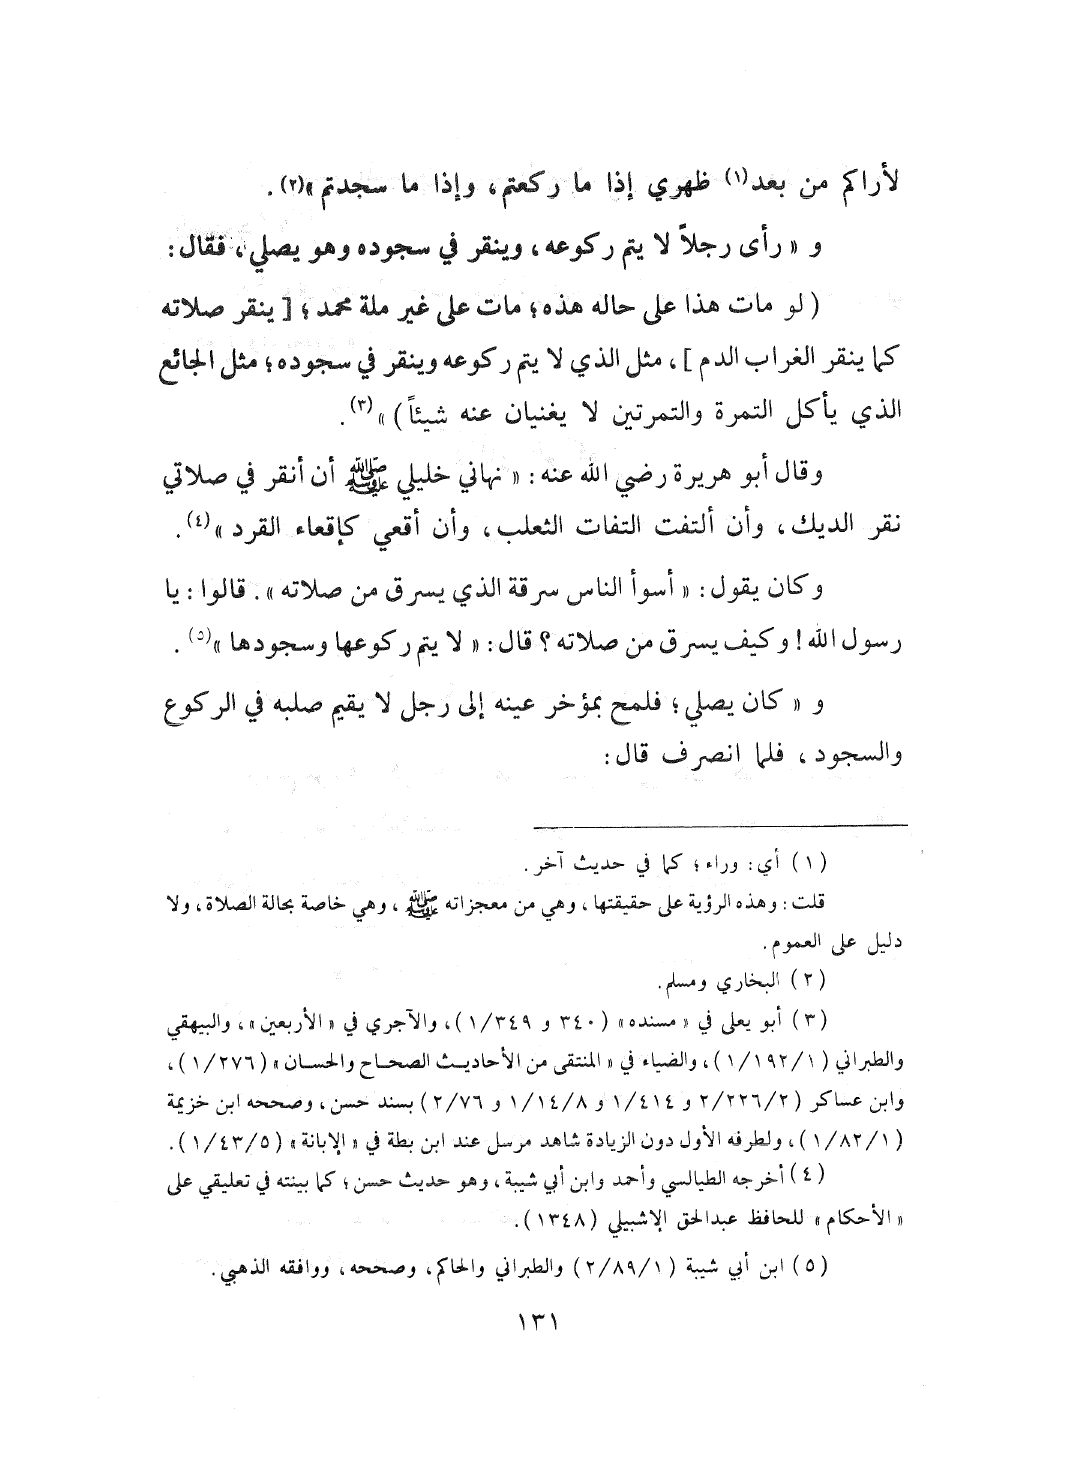 لأراكم من بعد(١) ظهري إذا ما ركعتم، وإذا ما سجدتم »(٢).
و « رأى رجلاً لا يتم ركوعه، وينقر في سجوده وهو يصلي، فقال:
( لو مات هذا على حاله هذه؛ مات على غير ملة محمد؛ [ ينقر صلاته
كما ينقر الغراب الدم ]، مثل الذي لا يتم ركوعه وينقر في سجوده؛ مثل الجائع
الذي يأكل التمرة والتمرتين لا يغنيان عنه شيئاً ) »(٣).
وقال أبو هريرة رضي الله عنه: « نهاني خليلي ﷺ أن أنقر في صلاتي
نقر الديك، وأن ألتفت التفات الثعلب، وأن أقعي كإقعاء القرد »(٤).
وكان يقول: « أسوأ الناس سرقة الذي يسرق من صلاته ». قالوا: يا
رسول الله! وكيف يسرق من صلاته؟ قال: « لا يتم ركوعها وسجودها »(٥).
و « كان يصلي؛ فلمح بمؤخر عينه إلى رجل لا يقيم صلبه في الركوع
والسجود، فلما انصرف قال:
(١) أي: وراء؛ كما في حديث آخر.
قلت: وهذه الرؤية على حقيقتها، وهي من معجزاته ﷺ، وهي خاصة بحالة الصلاة، ولا
دليل على العموم.
(٢) البخاري ومسلم.
(٣) أبو يعلى في « مسنده » (٣٤٠ و ١/٣٤٩)، والآجري في « الأربعين »، والبيهقي
والطبراني (١/١٩٢/١)، والضياء في « المنتقى من الأحاديث الصحاح والحسان » (١/٢٧٦)،
وابن عساكر (٢/٢٢٦/٢ و ١/٤١٤ و ١/١٤/٨ و ٢/٧٦) بسند حسن، وصححه ابن خزيمة
(١/٨٢/١)، ولطرفه الأول دون الزيادة شاهد مرسل عند ابن بطة في « الإبانة » (١/٤٣/٥).
(٤) أخرجه الطيالسي وأحمد وابن أبي شيبة، وهو حديث حسن؛ كما بينته في تعليقي على
« الأحكام » للحافظ عبدالحق الإشبيلي (١٣٤٨).
(٥) ابن أبي شيبة (٢/٨٩/١) والطبراني والحاكم، وصححه، ووافقه الذهبي.
١٣١